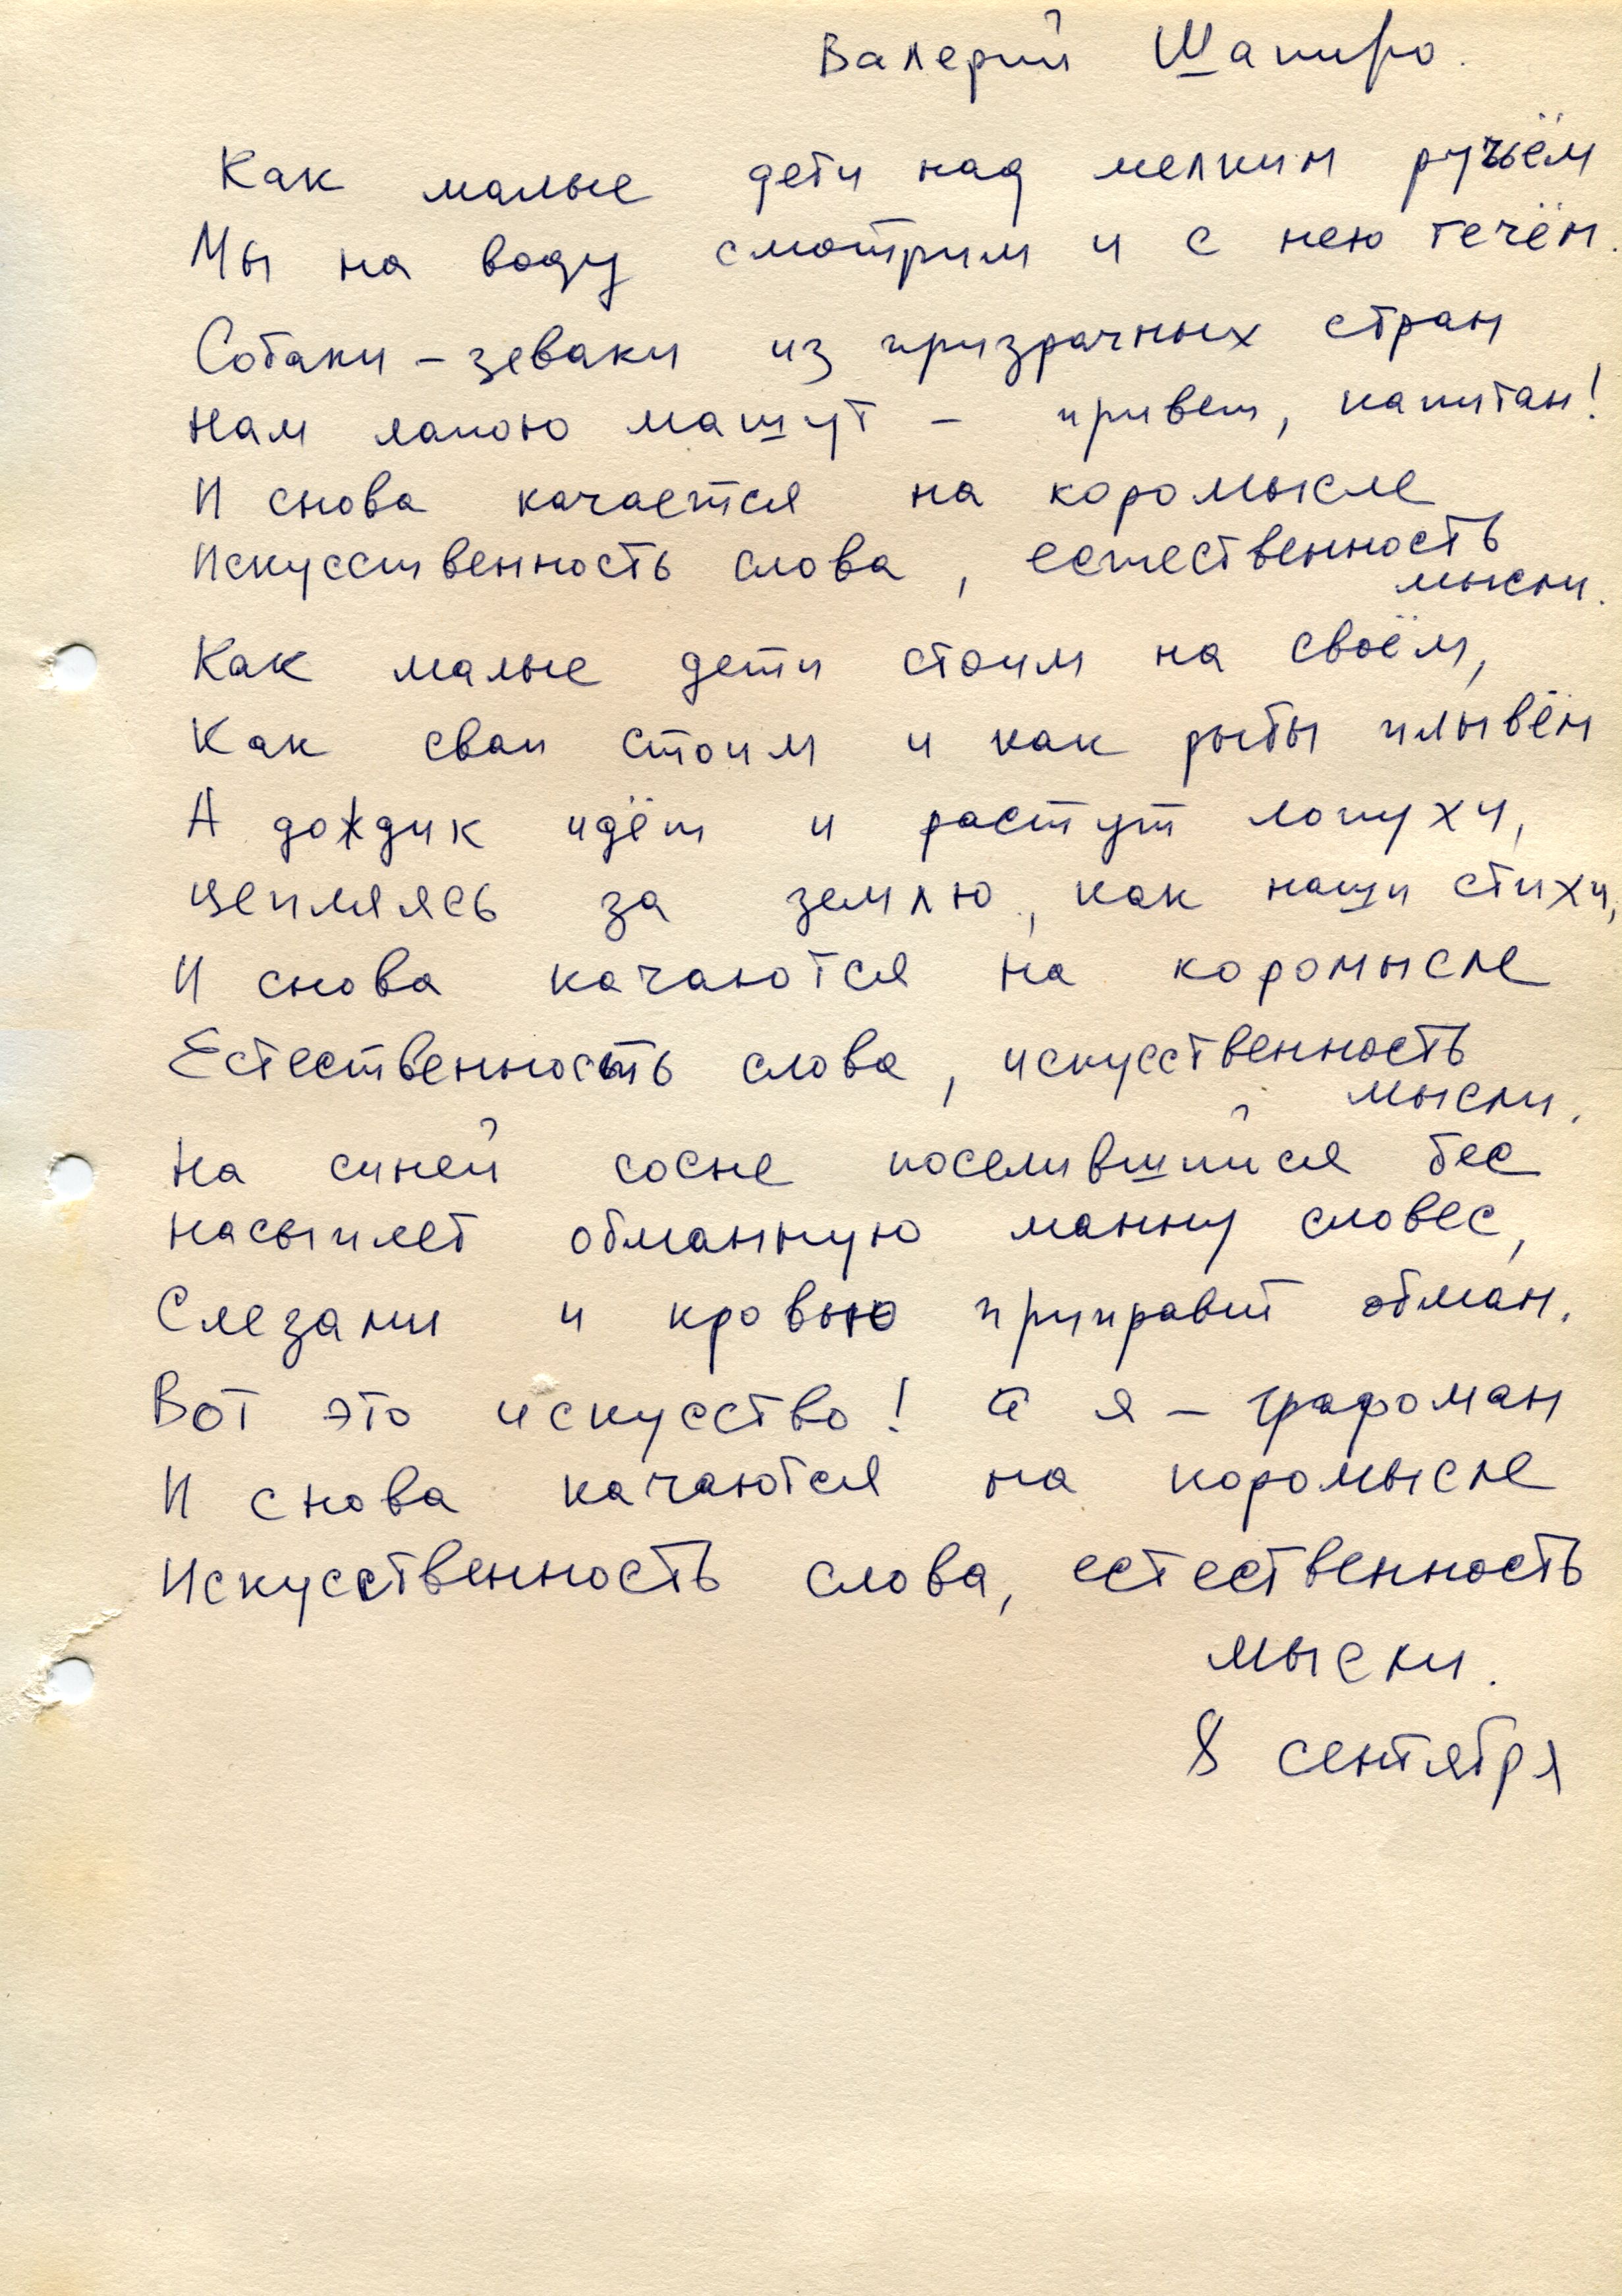 Валерий Шапиро.
Как малые дети над мелким ручьём
Мы на воду смотрим и с нею течём.
Собаки – зеваки из призрачных стран
Нам лапою машут – привет, капитан!
И снова качается на коромысле
Искусственность слова, естественность
мысли.
Как малые дети стоим на своём,
Как сваи стоим и как рыбы плывём
А дождик идёт и растут лопухи,
цепляясь за землю, как наши стихи,
И снова качаются на коромысле
Естественность слова, искусственность
мысли.
На синей сосне поселившийся бес
насыплет обманную манну словес,
Слезами и кровью приправит обман.
Вот это искусство! а я – графоман
И снова качаются на коромысле
Искусственность слова, естественность
мысли.
8 сентября